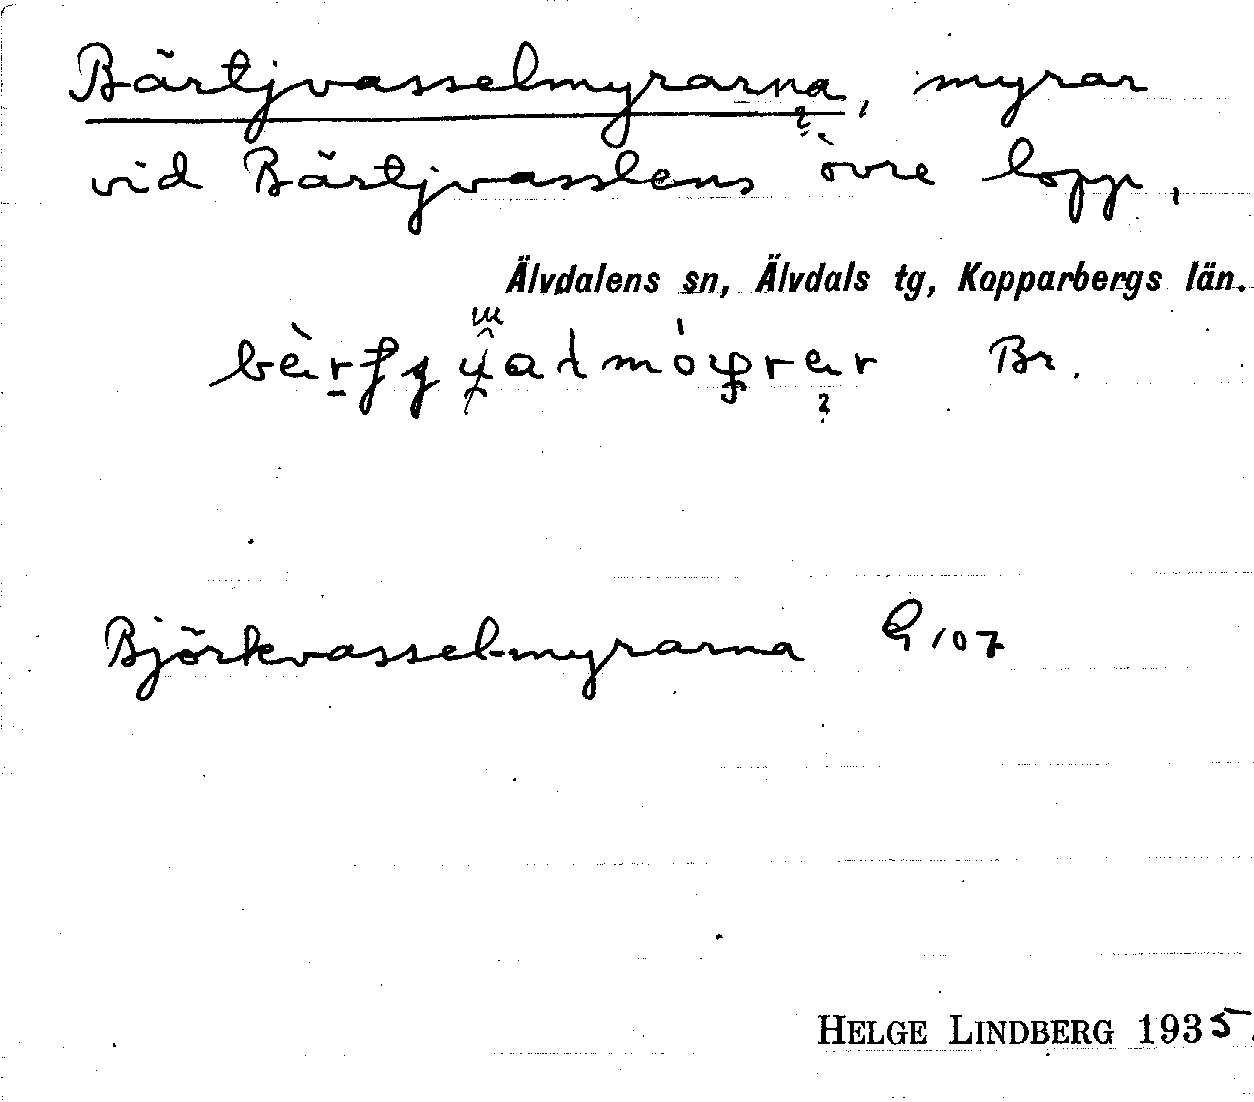 Bärtjvasselmyrarna, myrar
vid Bärtjvasslens övre lopp,
Älvdalens sn, Älvdals tg, Kopparbergs län.
Br.
Björkvasselmyrarna G 107
HELGE LINDBERG 1935.